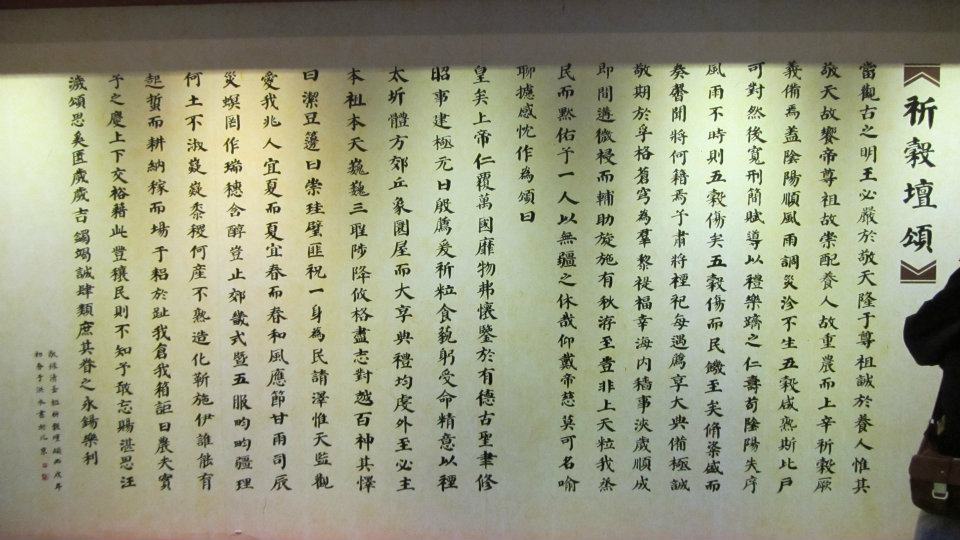 《祈穀壇頌》
當觀古之明王必嚴於敬天隆于尊祖誠於養人惟其
敬天故饗帝尊祖故崇配養人故重農而上辛祈穀厥
義備焉蓋陰陽順風雨調災沴不生五穀咸熟斯比戶
可對然後寬刑簡賦導以禮樂躋之仁壽苟陰陽失序
風雨不時則五穀傷矣五穀傷而民饑至矣脩粢盛而
奏馨聞將何籍焉予肅將禋祀每遇薦享大典備極誠
敬期於孚格蒼穹為羣黎禔福幸海內穡事浹歲順成
即間遘微祲而輔助旋施有秋洊至豈非上天粒我烝
民而默佑予一人以無疆之休哉仰戴帝慈莫可名喻
聊攄感忱作為頌曰
皇矣上帝仁覆萬國靡物弗懷鑒於有德古聖聿修
昭事建極元日殷薦爰祈粒食藐躬受命精意以禋
太圻體方郊丘象圜屋而大享典禮均虔外至必主
本祖本天巍巍三瑕陟降攸格盡志對越百神其懌
曰潔豆籩曰崇珪璧匪祝一身為民請澤惟天監觀
愛我兆人宜夏而夏宜春而春和風應節甘雨司辰
災螟罔作瑞穗含醇豈止郊畿式暨五服畇畇疆理
何土不淑嶷嶷黍稷何産不熟造化靳施伊誰能有
起蜇而耕納稼而場于耜於趾我倉我箱詎曰農夫實
予之慶上下交裕藉此豐穰民則不知予敢忘賜湛思汪
濊頌思奚匿歲歲吉蠲竭誠肆類庶其眷之永錫樂利